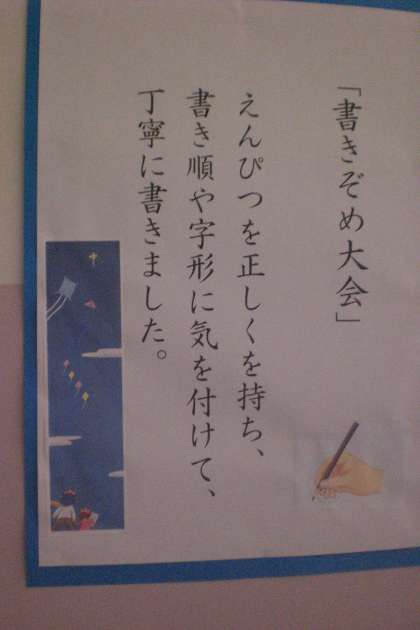 「書きぞめ大会」
えんぴつを正しくを持ち、
書き順や字形に気を付けて、
丁寧に書きました。